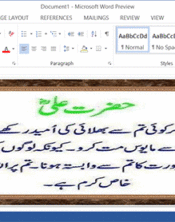 Document1 - Microsoft Word Preview
YOUT REFERENCES MAILINGS REVIEW VIEW
AaBbCcDd AaBbCcDd
¶ Normal ¶ No Spac
Paragraph
حضرت علیؓ
ر کوئی تم سے بھلائی کی اُمید رکھے
سے مایوس مت کرو۔ کیونکہ لوگوں
ورت کا تم سے وابستہ ہونا تم پر اللہ
خاص کرم ہے۔